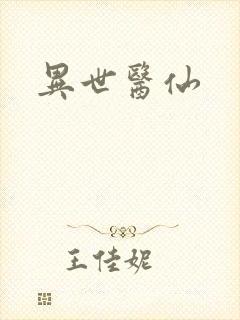 異世醫仙
王佳妮